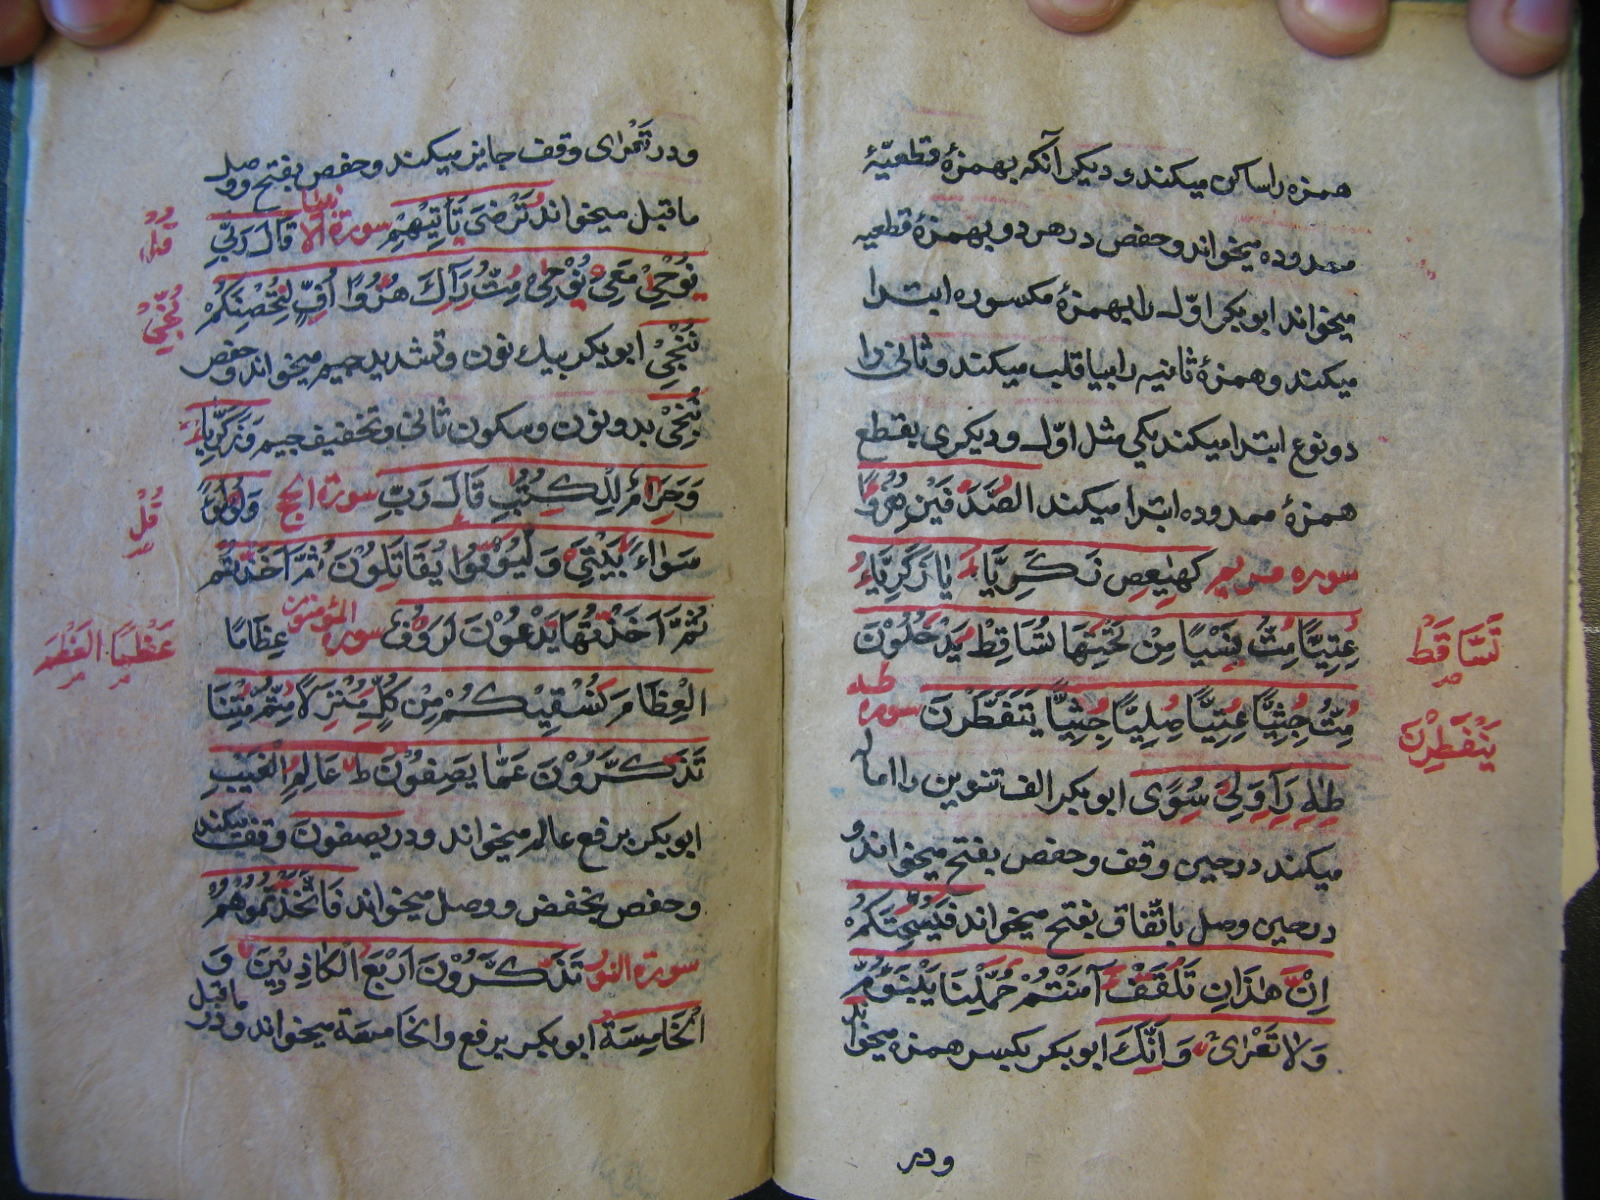 همزه را ساکن میکند و دیکر آنکه بهمزۀ قطعیّۀ
ممدوده میخواند و حفص در هر دو بهمزۀ قطعیه
میخواند ابوبکر اوّل را بهمزۀ مکسوره ابتدا
میکند و همزۀ ثانیه را بیا قلب میکند و ثانی را
دو نوع ابتدا میکند یکی مثل اوّل و دیکری بقطع
همزۀ ممدوده ابتدا میکند الصَّدَفَیْنِ هُزُوًا
سوره مریم کهیعص زَکَرِیَّاءَ یا زَکَرِیَّاءُ
عِتِیًّا مِتُّ نَسْیًا مِنْ تَحْتِهَا تُسَاقِطْ یَدْخُلُوْنَ
تَسَّاقَطْ
مِتُّ جُثِیًّا عِتِیًّا صِلِیًّا جُثِیًّا یَتَفَطَّرْنَ سوره طه
یَنْفَطِرْنَ
طٰهٰ رَاٰ وَلِیَ سِوًی ابوبکر الف تنوین را اماله
میکند در حین وقف و حفص بفتح میخواند و
در حین وصل باتّفاق بفتح میخواند فَیُسْحِتَکُمْ
اِنْ هٰذَانِ تَلْقَفْ آمَنْتُمْ حُمِّلْنَا یَبْنَؤُمِّ
وَلَا تَعْرٰی وَاَنَّکَ ابوبکر بکسر همزه میخواند
و در
و در تَعْرٰای وقف جایز میکند و حفص بفتح و وصل
ما قبل میخواند تَرْضٰی تَأْتِیْهِمْ سورة الانبیا قَالَ رَبِّی
قُلْ
نُوْحِیْ مَعِیَ نُوْحِیْ مِتُّ رَآكَ هُزُوًا اُفٍّ لِتُحْصِنَکُمْ
نُنْجِیْ ابوبکر بیك نون و تشدید جیم میخواند و حفص
نُنْجِیْ بدو نون و سکون ثانی و تخفیف جیم وَزَکَرِیَّاءَ
وَحَرَامٌ لِلْکُتُبِ قَالَ رَبِّ سورة الحج وَلُؤْلُؤًا
قُلْ
سَوَاءً بَیْتِیَ وَلْیُوْفُوا یُقَاتَلُوْنَ ثُمَّ اَخَذْتُهُمْ
ثُمَّ اَخَذْتُهَا یَدْعُوْنَ لَرَؤُفٌ سورة المؤمنون عِظَامًا
عَظْمًا الْعَظْمَ
الْعِظَامَ نُسْقِیْکُمْ مِنْ کُلٍّ مُنْزَلًا مِتُّمْ مِتْنَا
تَذَکَّرُوْنَ عَمَّا یَصِفُوْنَ ط عَالِمِ الْغَیْبِ
ابوبکر برفع عالم میخواند و در یصفون وقف میکند
و حفص بخفض و وصل میخواند فَاتَّخَذْتُمُوْهُمْ
سورة النور تَذَکَّرُوْنَ اَرْبَعُ الْکَاذِبِیْنَ وَ
الْخَامِسَةُ ابوبکر برفع و الخامسة میخواند و در ما قبل